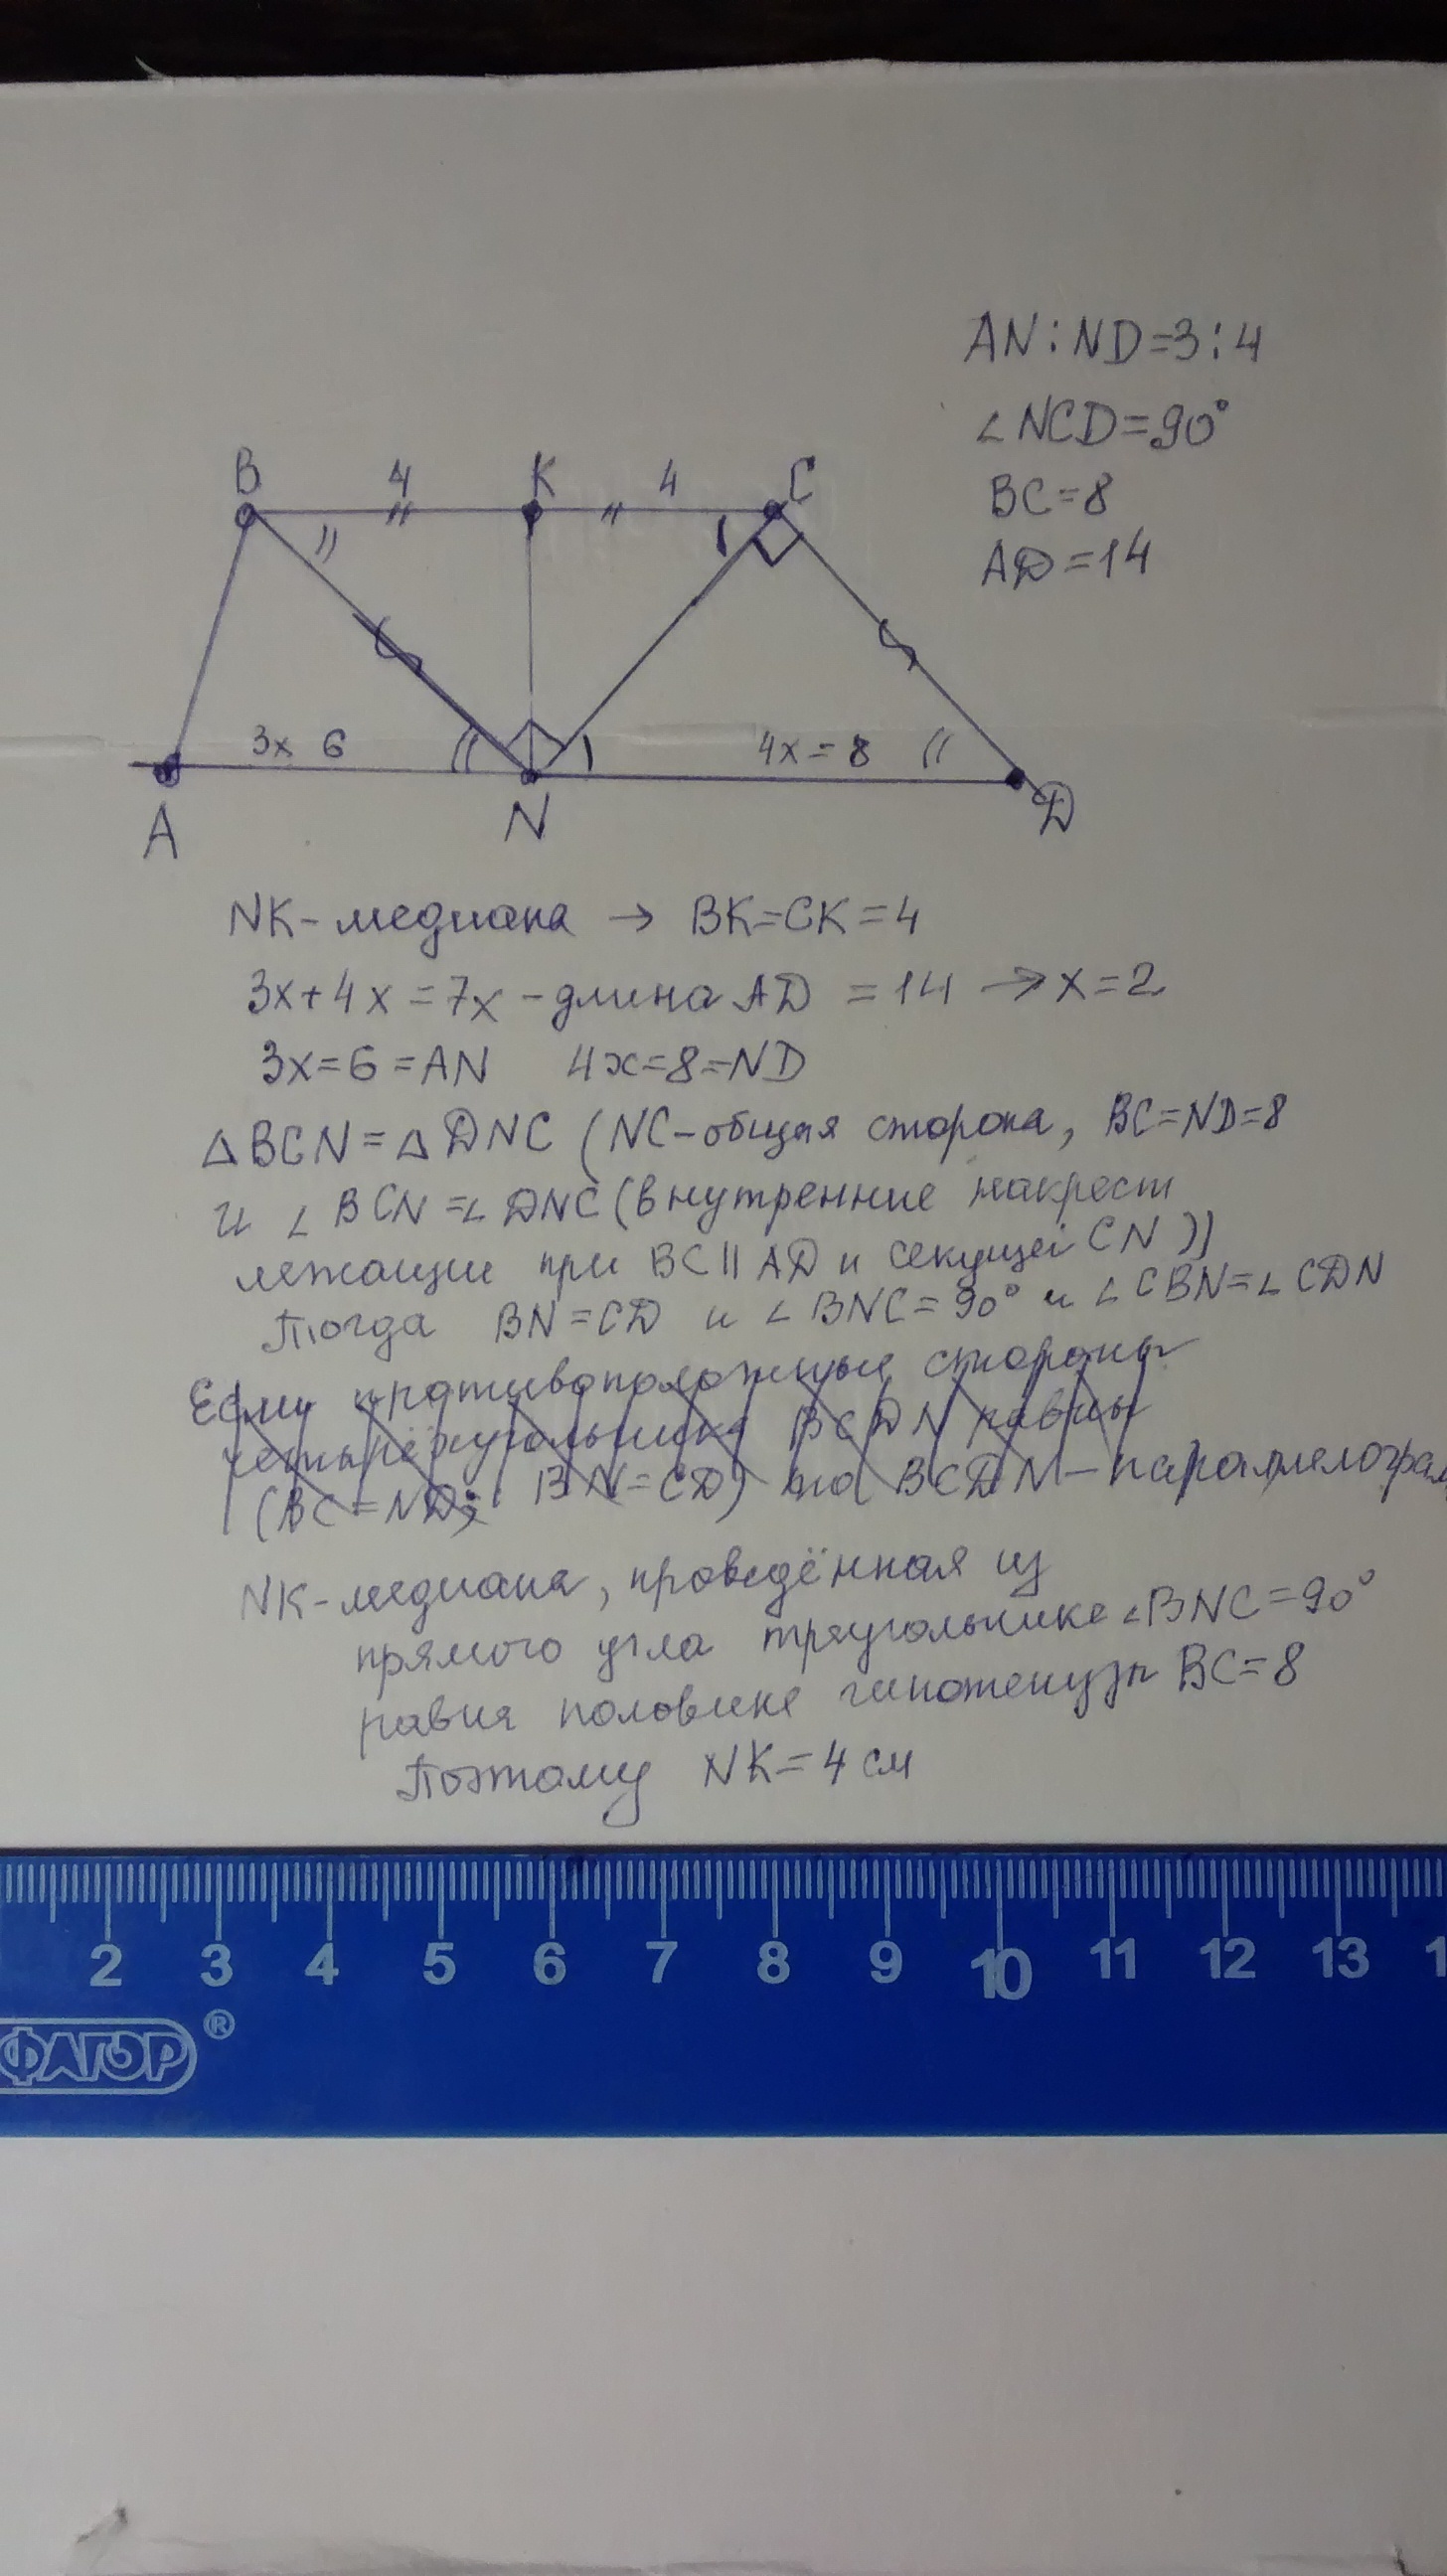 AN:ND=3:4
∠NCD=90°
BC=8
AD=14
B 4 K 4 C
3x 6 4x=8
A N D
NK-медиана → BK=CK=4
3x+4x=7x-длина AD =14 → x=2
3x=6=AN 4x=8=ND
△BCN=△DNC (NC-общая сторона, BC=ND=8
и ∠BCN=∠DNC (внутренние накрест
лежащие при BC||AD и секущей CN))
Тогда BN=CD и ∠BNC=90° и ∠CBN=∠CDN
Если противоположные стороны
четырёхугольника BCDN равны
(BC=ND; BN=CD) то BCDN-параллелограм
NK-медиана, проведённая из
прямого угла треугольнике ∠BNC=90°
равна половине гипотенузы BC=8
Поэтому NK=4 см
2 3 4 5 6 7 8 9 10 11 12 13 1
ФАГОР ®